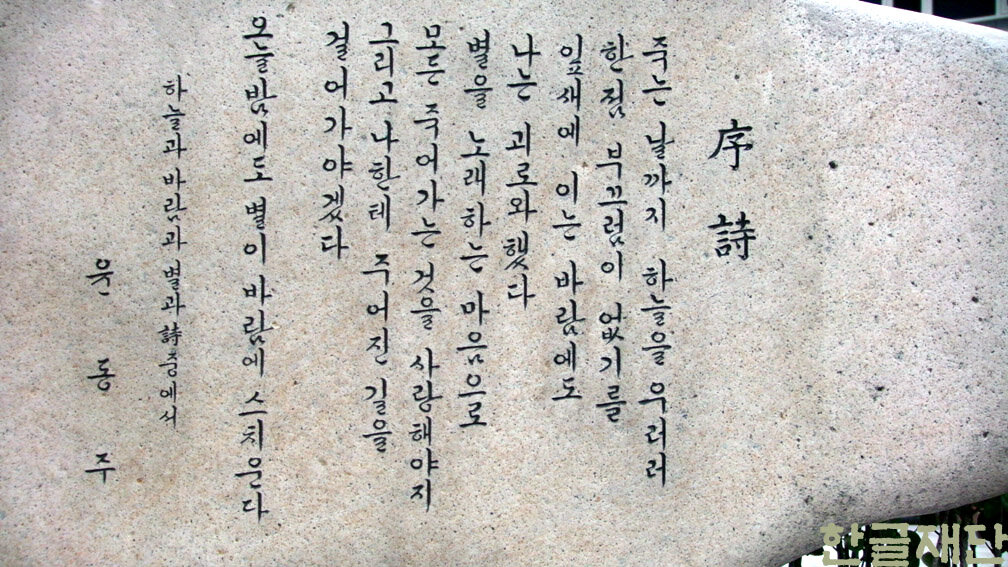 序詩
죽는 날까지 하늘을 우러러
한점 부끄럼이 없기를
잎새에 이는 바람에도
나는 괴로와했다
별을 노래하는 마음으로
모든 죽어가는 것을 사랑해야지
그리고 나한테 주어진 길을
걸어가야겠다
오늘밤에도 별이 바람에 스치운다
하늘과 바람과 별과 詩 중에서
윤동주
한글재단